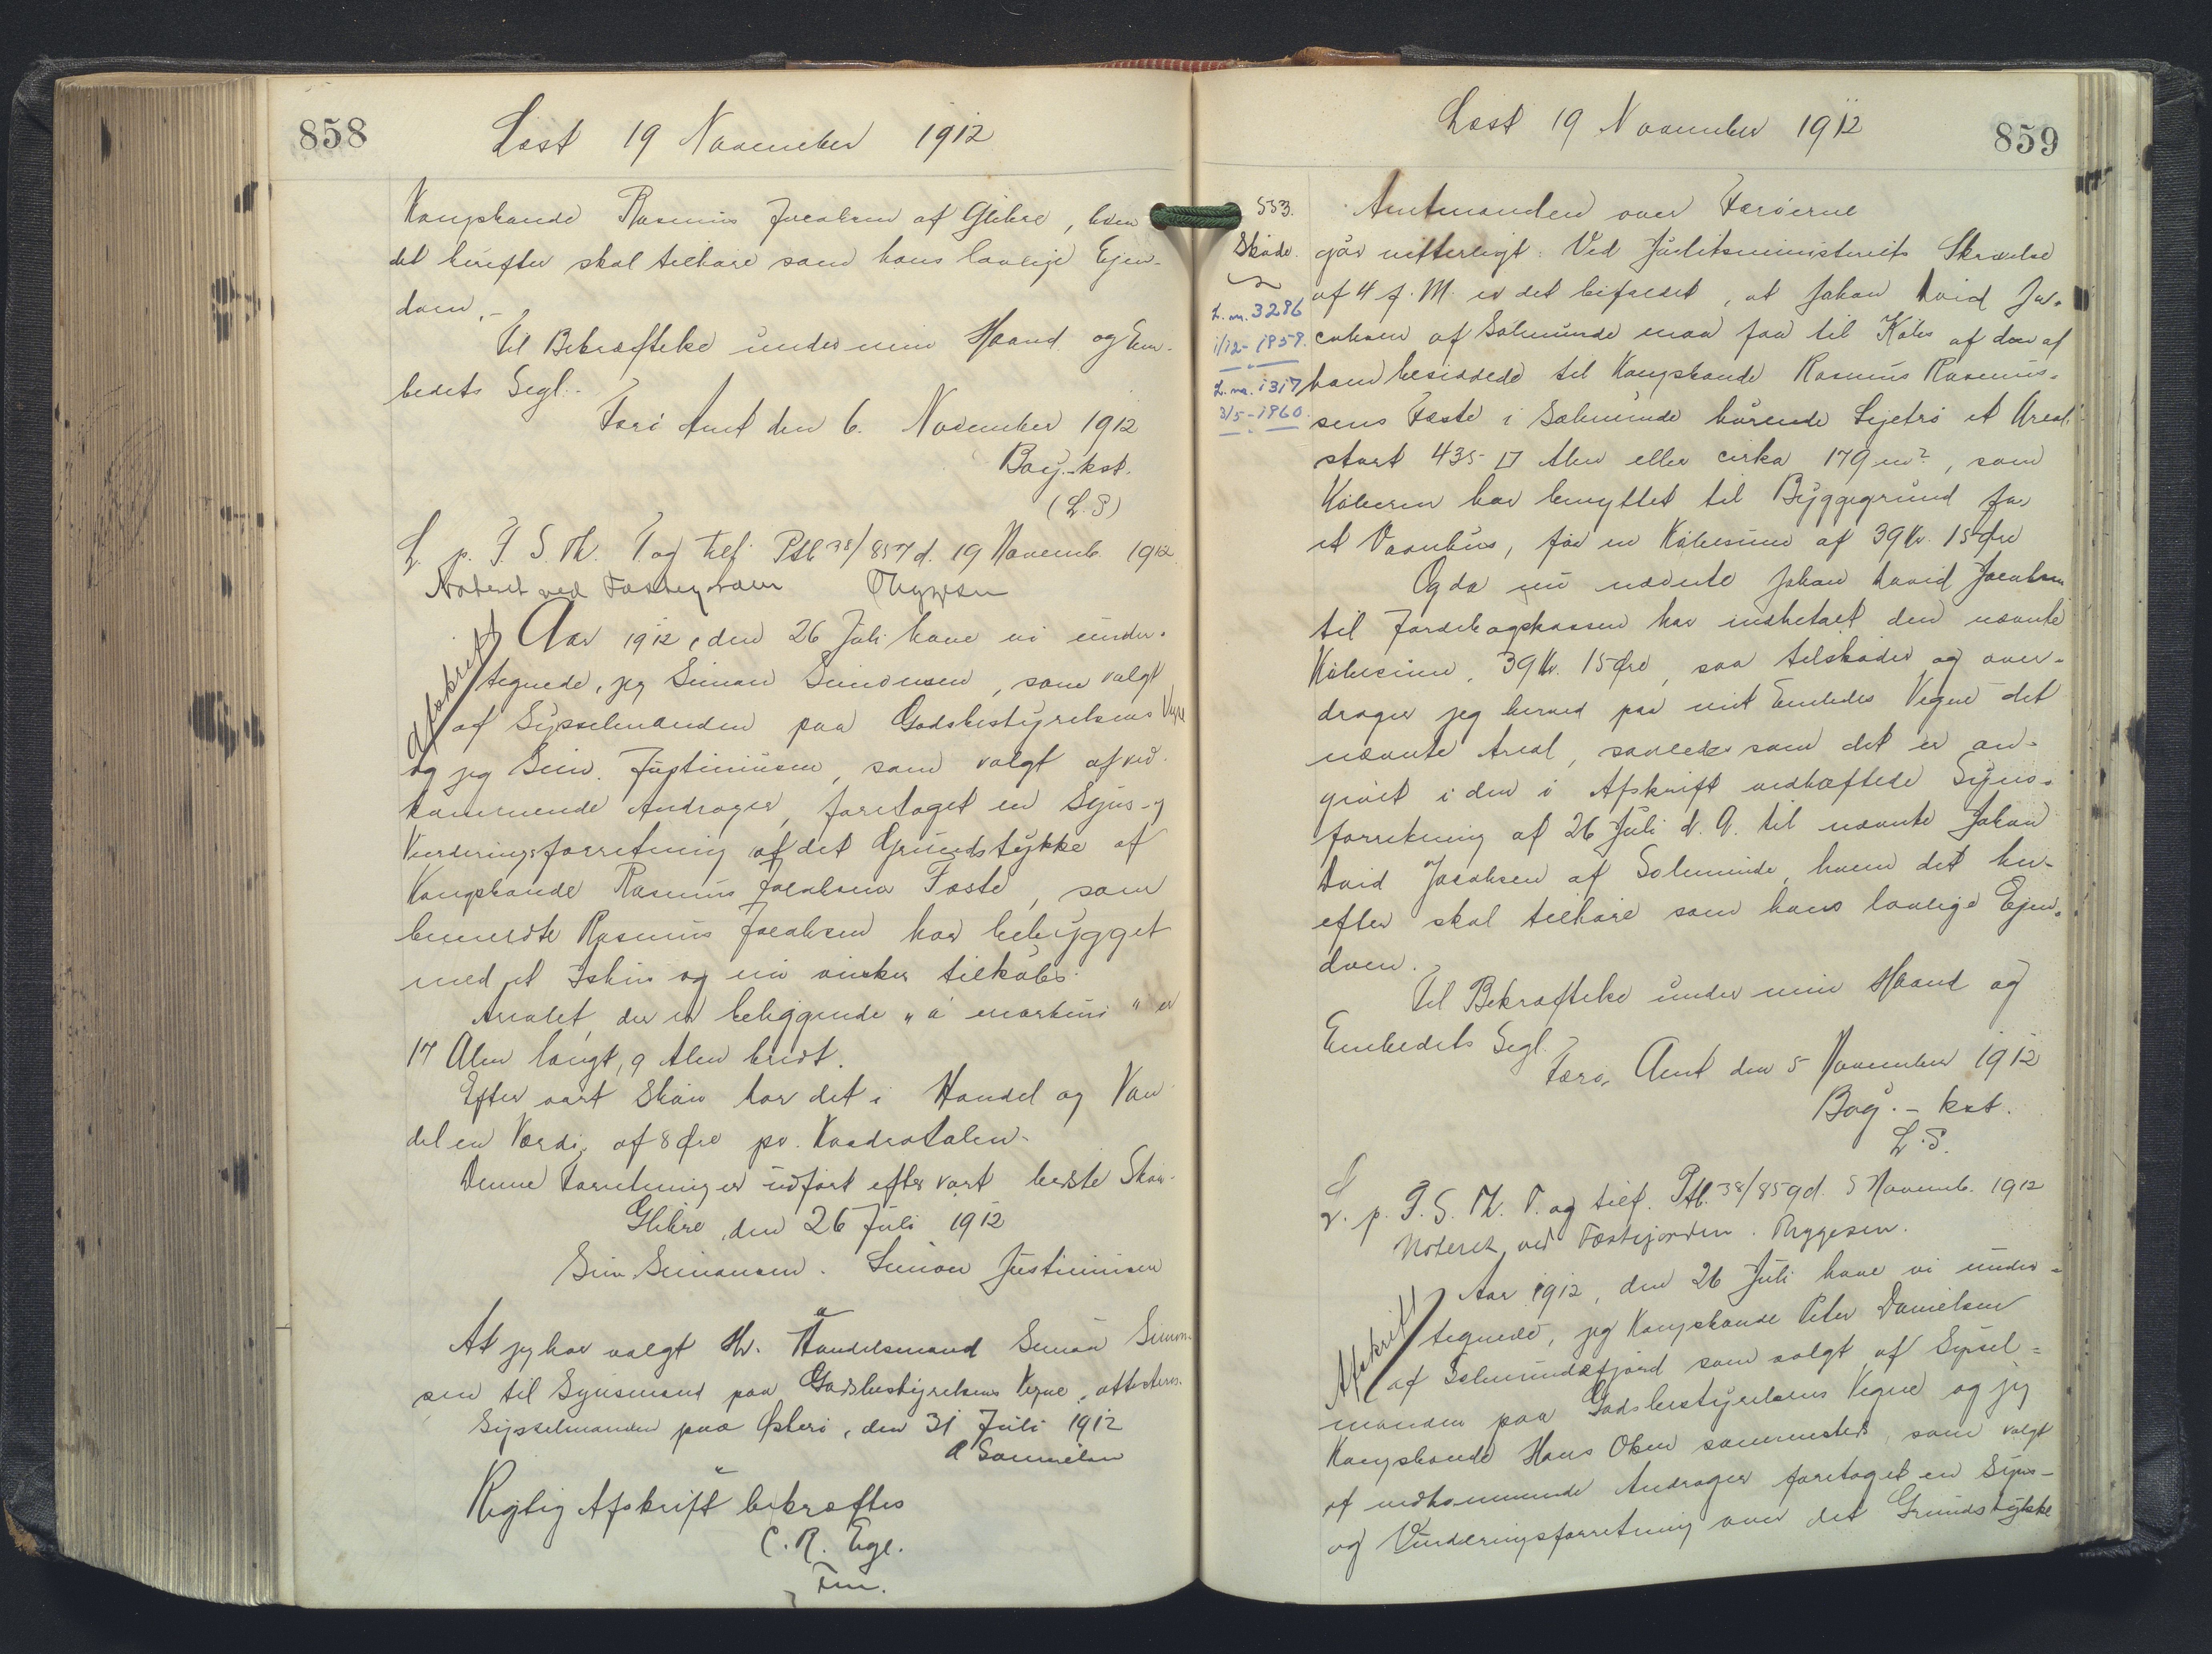 858
Læst 19 November 1912
Kongsbonde Rasmus Jacobsen af Glibre, hvem
det herefter skal tilhøre som hans lovlige Ejen-
dom.-
Til Bekræftelse under min Haand og Em-
bedets Segl.-
Færø Amt den 6. November 1912
Bay.-kst.
(L.S)
L. p. F. S. Th. T og tilf. Ptb 38/857 d. 19 Novemb. 1912
Noteret ved Fæsteguden Thygesen
Afskrift
Aar 1912, den 26 Juli have vi under-
tegnede, jeg Simon Simonsen, som valgt
af Sysselmanden paa Godsbestyrelsens Vegne
og jeg Sim. Justinussen, som valgt af ved-
kommende Andrager, foretaget en Syns- og
Vurderingsforretning af det Grundstykke af
Kongsbonde Rasmus Jacobsens Fæste, som
bemeldte Rasmus Jacobsen har bebygget
med et Ishus og nu ønsker tilkøbs.
Arealet, der er beliggende "á mørkini" er
17 Alen langt, 9 Alen bredt.
Efter vort Skøn har det i Handel og Van-
del en Værdi af 8 Øre pr. Kvadratalen.
Denne Forretning er udført efter vort bedste Skøn.
Glibre, den 26 Juli 1912
Sim. Simonsen. Simon Justinussen
At jeg har valgt Hr. Handelsmand Simon Simon-
sen til Synsmand paa Godsbestyrelsens Vegne, attesteres.
Sysselmanden paa Østerø, den 31 Juli 1912
A Samuelsen
Rigtig Afskrift bekræftes
C. R. Ege.
Fm.
Læst 19 November 1912
859
553.
Skøde.
L. nr. 3286
1/12-1958.
L. nr. 1317
3/5-1960.
Amtmanden over Færøerne
gør vitterligt: Ved Justitsministeriets Skrivelse
af 4 f. M. er det bifaldet, at Johan David Ja-
cobsen af Solmunde maa faa til Købs af den af
ham besiddede til Kongsbonde Rasmus Rasmus-
sens Fæste i Solmunde hørende Lejetrø et Areal,
stort 435 □ Alen eller cirka 179 m², som
Køberen har benyttet til Byggegrund for
et Vaanhus, for en Købesum af 39 Kr. 15 Øre
Og da nu nævnte Johan David Jacobsen
til Jordebogskassen har indbetalt den nævnte
Købesum, 39 Kr. 15 Øre, saa tilskøder og over-
drager jeg herved paa mit Embedes Vegne det
nævnte Areal, saaledes som det er an-
givet i den i Afskrift vedhæftede Syns-
forretning af 26 Juli d. A. til nævnte Johan
David Jacobsen af Solmunde, hvem det her-
efter skal tilhøre som hans lovlige Ejen-
dom.
Til Bekræftelse under min Haand og
Embedets Segl.
Færø Amt den 5 November 1912
Bay.- kst.
L.S.
L. p. F. S. Th. T. og tilf. Ptb. 38/859 d. 5 Novemb. 1912
Noteret ved Fæstejorden. Thygesen.
Afskrift
Aar 1912, den 26 Juli have vi under-
tegnede, jeg Kongsbonde Peter Danielsen
af Solmundefjord som valgt af Syssel-
manden paa Godsbestyrelsens Vegne og jeg
Kongsbonde Hans Olsen sammesteds, som valgt
af vedkommende Andrager foretaget en Syns-
og Vurderingsforretning over det Grundstykke